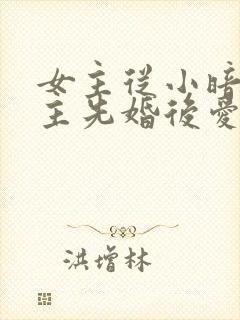 女主從小暗
主先婚後愛
洪增林